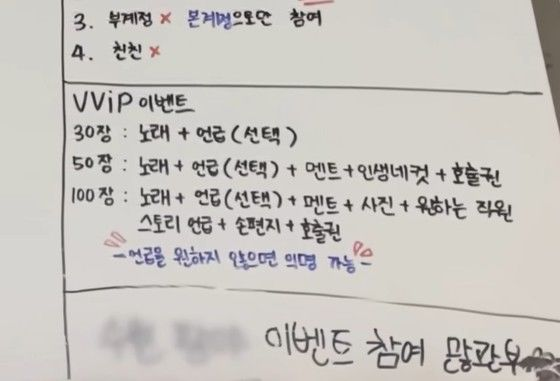 3. 부계정 x 본계정으로만 참여
4. 친친 x
VViP 이벤트
30장 : 노래 + 언급(선택)
50장 : 노래 + 언급(선택) + 멘트+인생네컷 + 호출권
100장 : 노래 + 언급(선택) + 멘트 + 사진 + 원하는 직원
스토리 언급 + 손편지 + 호출권
-언급을 원하지 않으면 익명 가능-
이벤트 참여 많관부